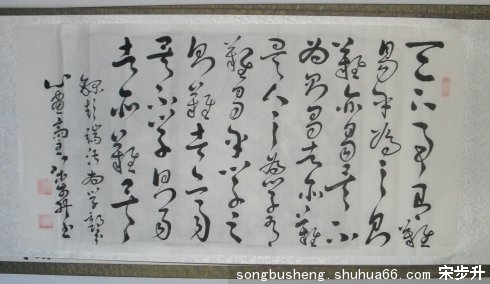 天下事有難
易乎為之則
難亦易矣不
為則易者亦難
矣人之為學有
難易乎學之
則難者亦易
矣不學則易
者亦難矣
錄彭端淑為學部分
心畫齋主宋步升書
songbusheng.shuhua66.com 宋步升